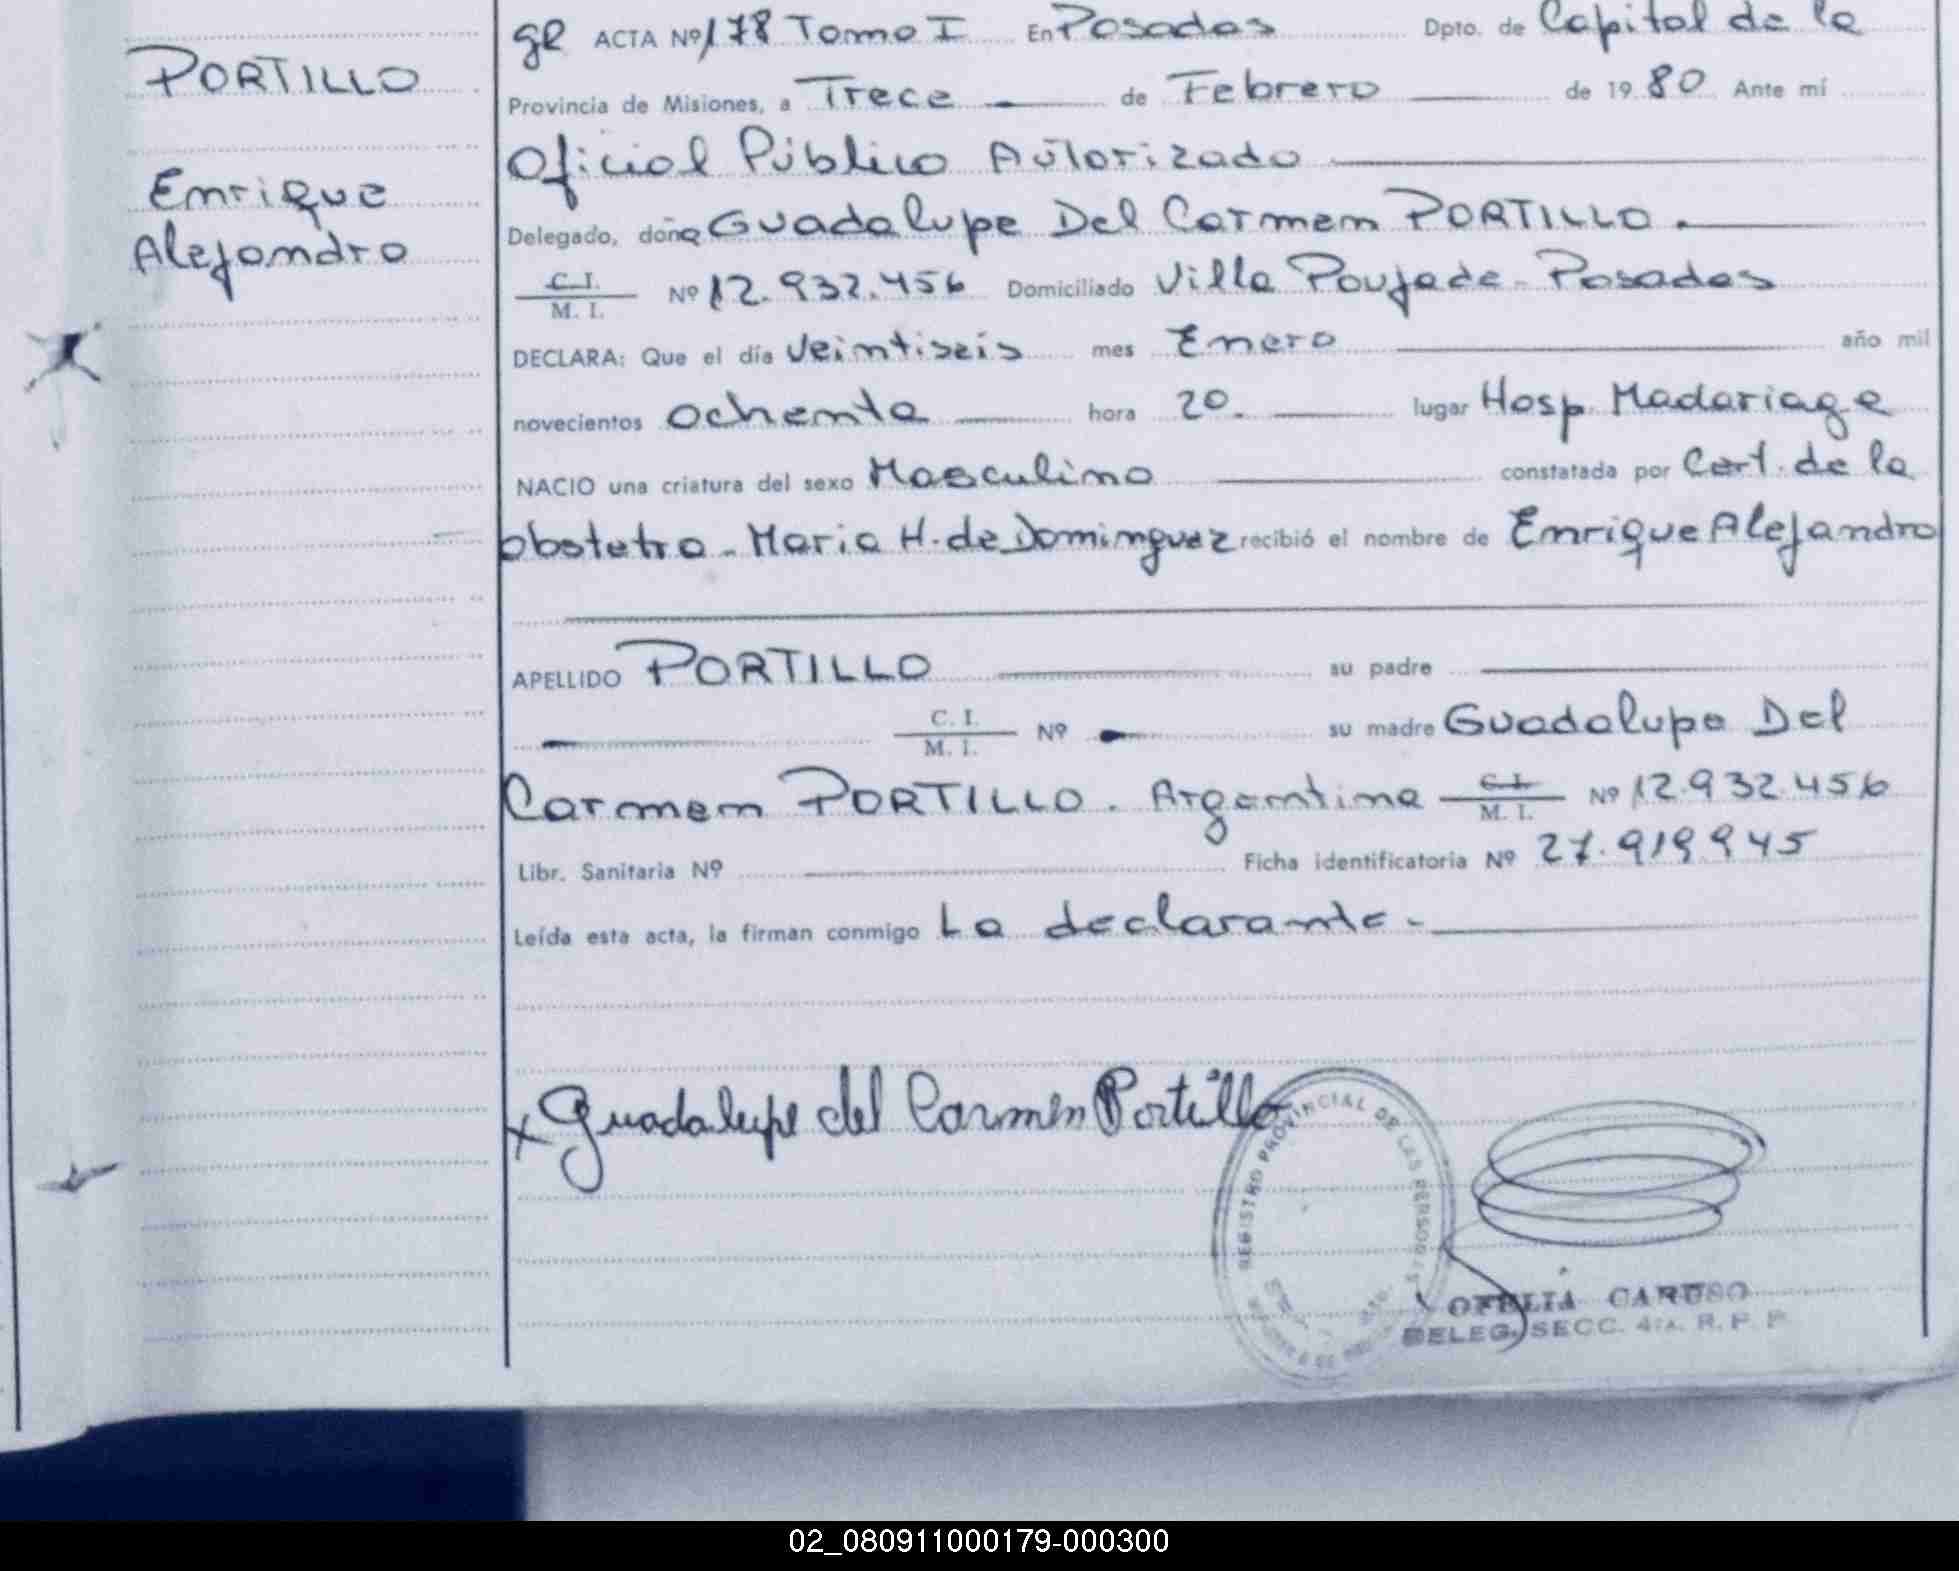 PORTILLO
Enrique
Alejandro
gR ACTA Nº 178 Tomo I En Posadas Dpto. de Capital de la
Provincia de Misiones, a Trece de Febrero de 1980 Ante mí
Oficial Público Autorizado
Delegado, doña Guadalupe Del Carmen PORTILLO.
C. I. / M. I. Nº 12.932.456 Domiciliado Villa Poujade - Posadas
DECLARA: Que el día veintiseis mes Enero año mil
novecientos ochenta hora 20. lugar Hosp Madariaga
NACIO una criatura del sexo Masculino constatada por Cert. de la
obstetra - Maria H. de Dominguez recibió el nombre de Enrique Alejandro
APELLIDO PORTILLO su padre
C. I. / M. I. Nº su madre Guadalupe Del
Carmen PORTILLO. Argentina C. I. / M. I. Nº 12.932.456
Libr. Sanitaria Nº Ficha identificatoria Nº 27.919945
Leída esta acta, la firman conmigo La declarante -
x Guadalupe del Carmen Portillo
REGISTRO PROVINCIAL DE LAS PERSONAS
OFELIA CARUSO
DELEG. SECC. 4ta. R. P. P.
02_080911000179-000300